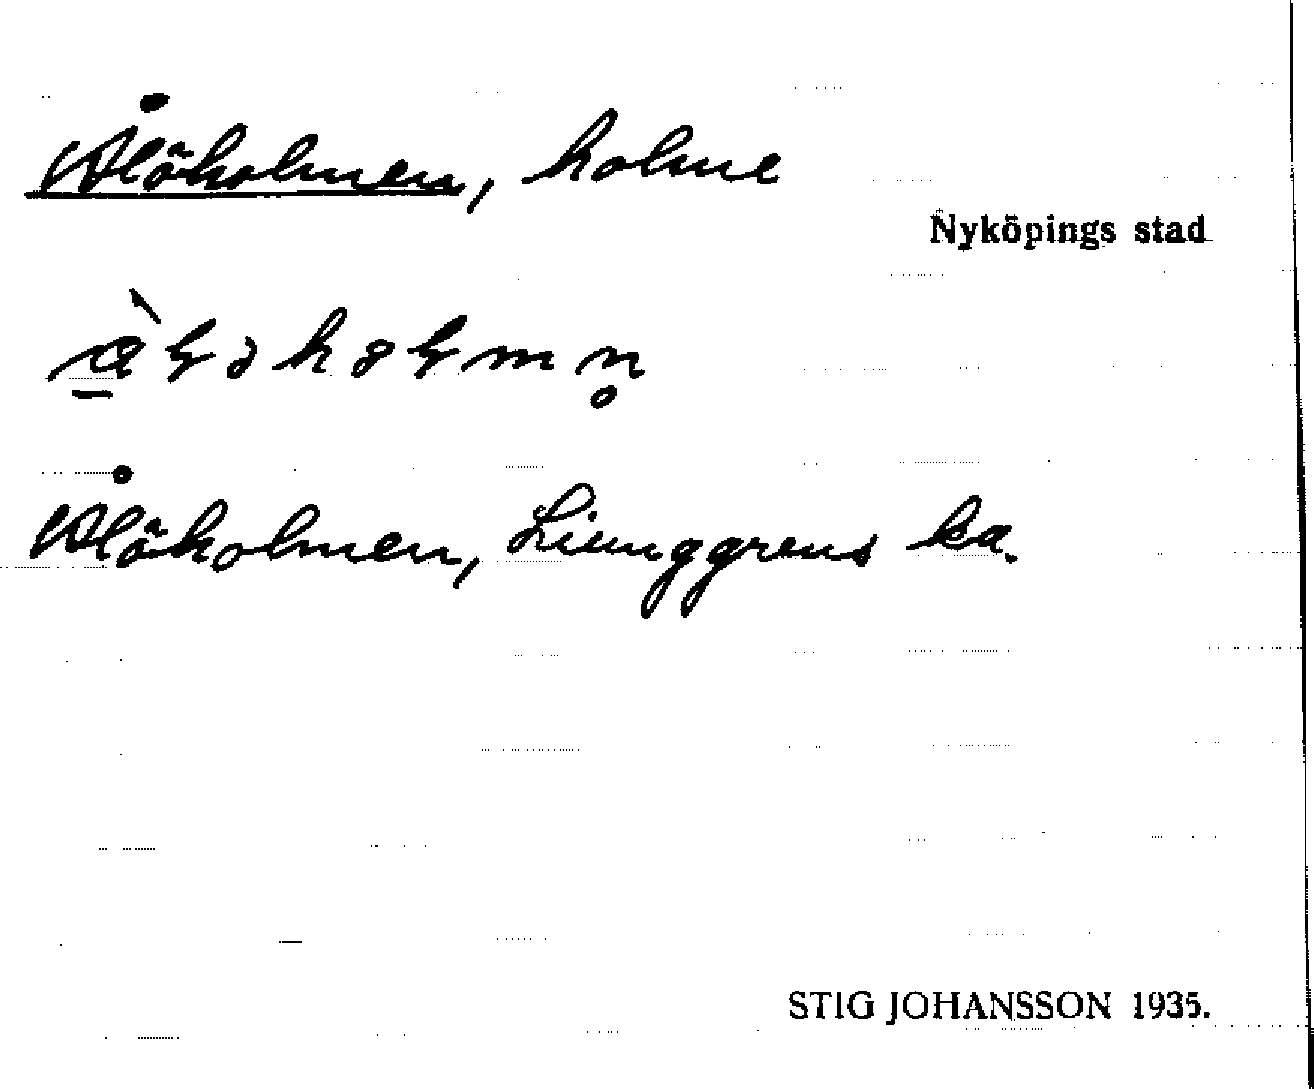 Ålöholmen, holme
Nyköpings stad
Ålöholmen, Liunggrens ka.
STIG JOHANSSON 1935.